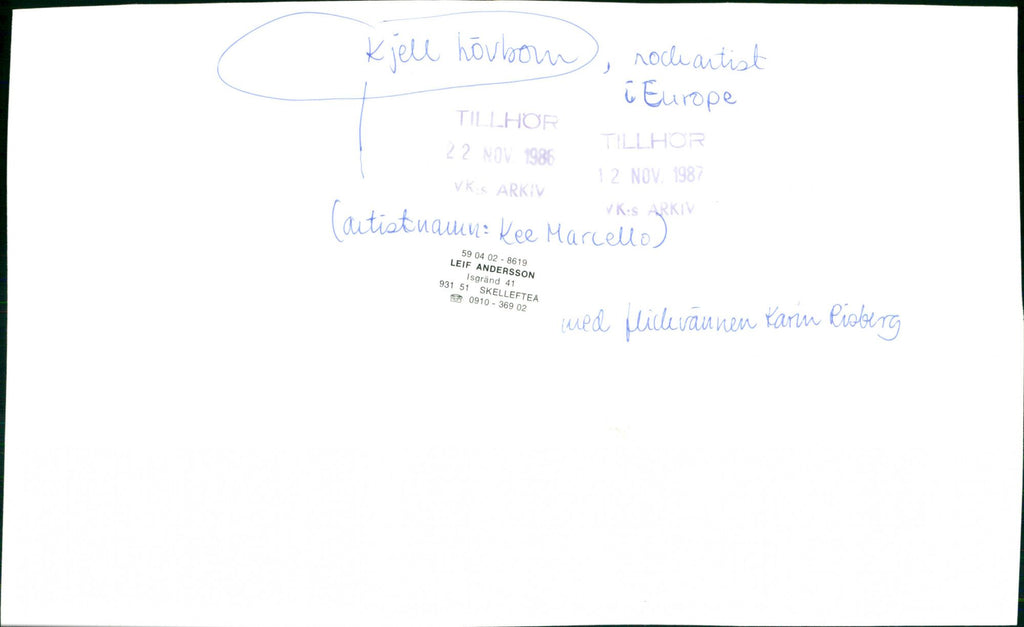 Kjell Lövbom, rockartist
i Europe
TILLHÖR
22 NOV. 1986
VK:s ARKIV
TILLHÖR
12 NOV. 1987
VK:s ARKIV
(artistnamn: Kee Marcello)
59 04 02 - 8619
LEIF ANDERSSON
Isgränd 41
931 51 SKELLEFTEA
☎ 0910 - 369 02
med flickvännen Karin Risberg